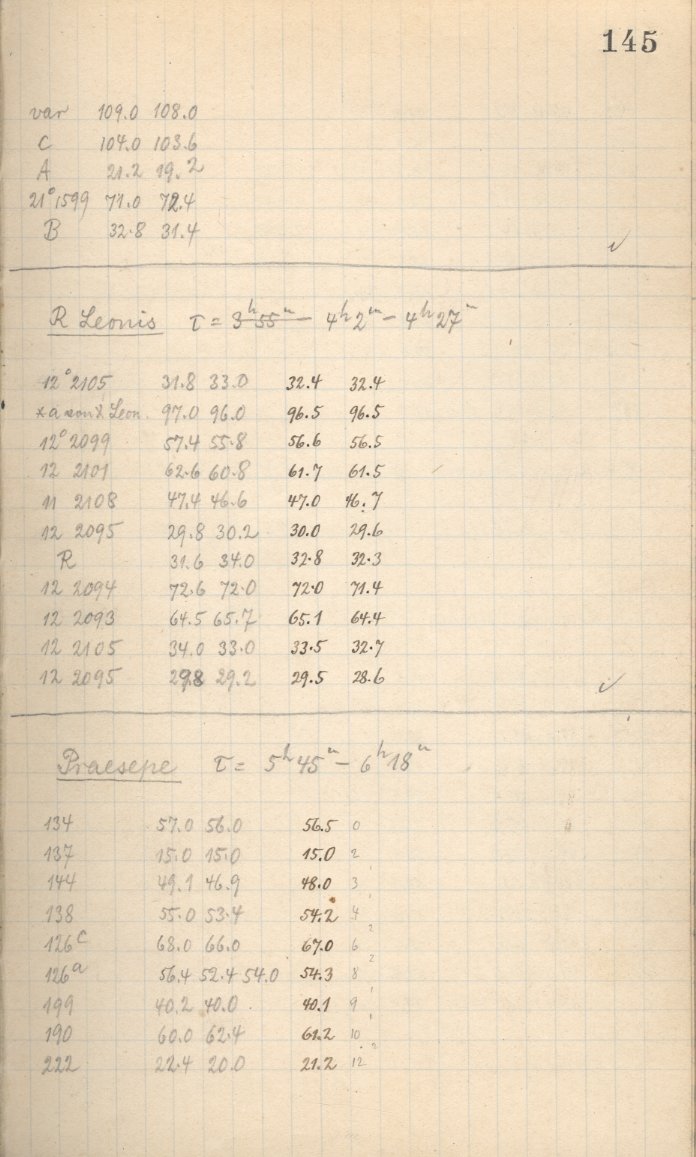 145
var 109.0 108.0
C 104.0 103.6
A 21.2 19.2
21° 1599 71.0 72.4
B 32.8 31.4
R Leonis τ = 3h 55m – 4h 2m – 4h 27m
12° 2105 31.8 33.0 32.4 32.4
*a von Leon. 97.0 96.0 96.5 96.5
12° 2099 57.4 55.8 56.6 56.5
12 2101 62.6 60.8 61.7 61.5
11 2108 47.4 46.6 47.0 46.7
12 2095 29.8 30.2 30.0 29.6
R 31.6 34.0 32.8 32.3
12 2094 72.6 72.0 72.0 71.4
12 2093 64.5 65.7 65.1 64.4
12 2105 34.0 33.0 33.5 32.7
12 2095 29.8 29.2 29.5 28.6
Praesepe τ = 5h 45m – 6h 18m
134 57.0 56.0 56.5 0
137 15.0 15.0 15.0 2
144 49.1 46.9 48.0 3
138 55.0 53.4 54.2 4
126c 68.0 66.0 67.0 6
126a 56.4 52.4 54.0 54.3 8
199 40.2 40.0 40.1 9
190 60.0 62.4 61.2 10
222 22.4 20.0 21.2 12